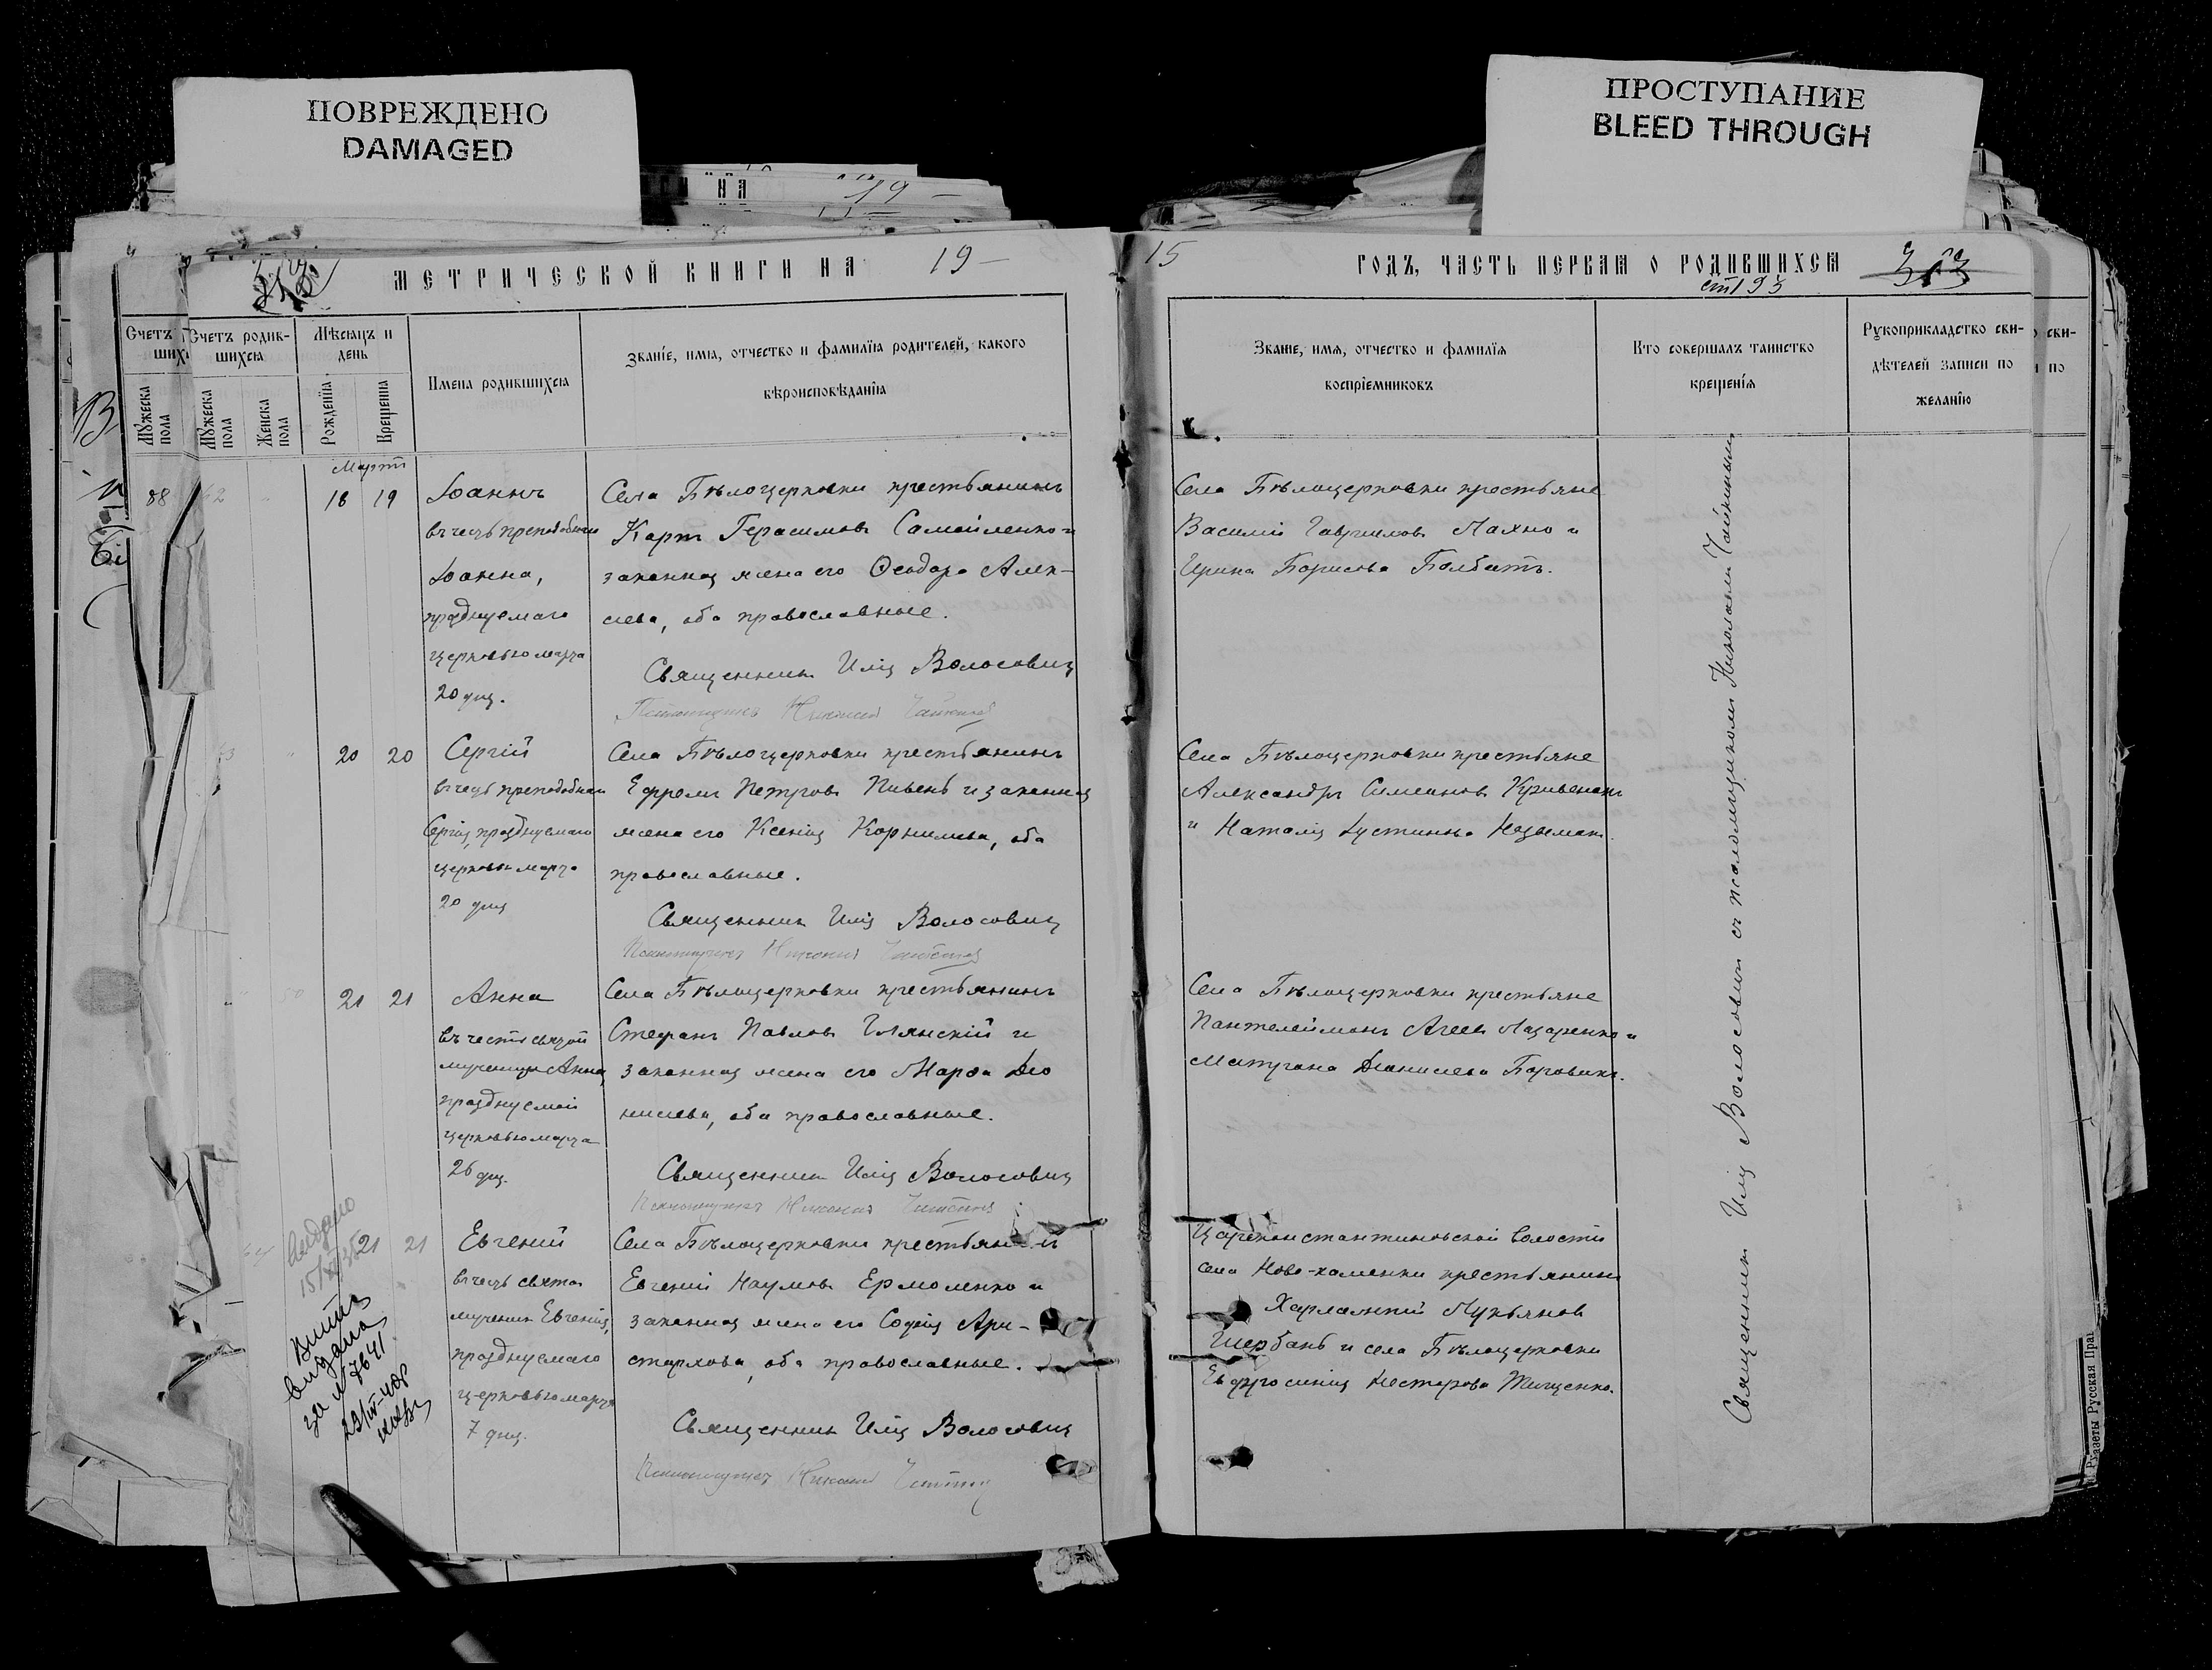 ПОВРЕЖДЕНО
DAMAGED
ПРОСТУПАНИЕ
BLEED THROUGH
МЕТРИЧЕСКОЙ КНИГИ НА 19—
15 ГОДЪ, ЧАСТЬ ПЕРВАЯ О РОДИВШИХСЯ
Счетъ родив-
шихся
Мѣсяцъ и
день
Мужеска
пола
Женска
пола
Рожденія
Крещенія
Имена родившихся
Званіе, имя, отчество и фамилія родителей, какого
вѣроисповѣданія
Званіе, имя, отчество и фамилія
воспріемниковъ
Кто совершалъ таинство
крещенія
Рукоприкладство сви-
дѣтелей записи по
желанію
Мартъ
88
18 19
Іоаннъ
въ честь преподобнаго
Іоанна,
празднуемаго
церковью марта
20 дня.
Села Бѣлоцерковки крестьянинъ
Карпъ Герасимовъ Самойленко и
законная жена его Ѳеодора Алек-
сіева, оба православные.
Священникъ Илія Волосовичъ
Псаломщикъ Николай
Села Бѣлоцерковки крестьяне
Василій Гавріиловъ Махно и
Ирина Борисова
20 20
Сергій
въ честь преподобнаго
Сергія, празднуемаго
церковью марта
20 дня
Села Бѣлоцерковки крестьянинъ
Ефремъ Петровъ Пивень и законная
жена его Ксенія Корниліева, оба
православные.
Священникъ Илія Волосовичъ
Псаломщикъ Николай
Села Бѣлоцерковки крестьяне
Александръ Симеоновъ
и Наталія Іустинова
21 21
Анна
въ честь святой
мученицы Анны,
празднуемой
церковью марта
26 дня.
Села Бѣлоцерковки крестьянинъ
Стефанъ Павловъ и
законная жена его Марфа Діо
нисіева, оба православные.
Священникъ Илія Волосовичъ
Псаломщикъ Николай
Села Бѣлоцерковки крестьяне
Пантелеймонъ Агеевъ Лазаренко и
Матрона Діонисіева
21 21
Евгеній
въ честь святаго
мученика Евгенія,
празднуемаго
церковью марта
7 дня.
Села Бѣлоцерковки крестьянинъ
Евгеній Наумовъ Ермоленко и
законная жена его Софія Ари-
стархова, оба православные.
Священникъ Илія Волосовичъ
Псаломщикъ Николай
Цареконстантиновской волости
села Ново-каменки крестьянинъ
Харлампій Лукьяновъ
Щербань и села Бѣлоцерковки
Евфросинія Нестерова Тищенко.
видана
за № 7641
Священникъ Илія Волосовичъ съ псаломщикомъ Николаемъ